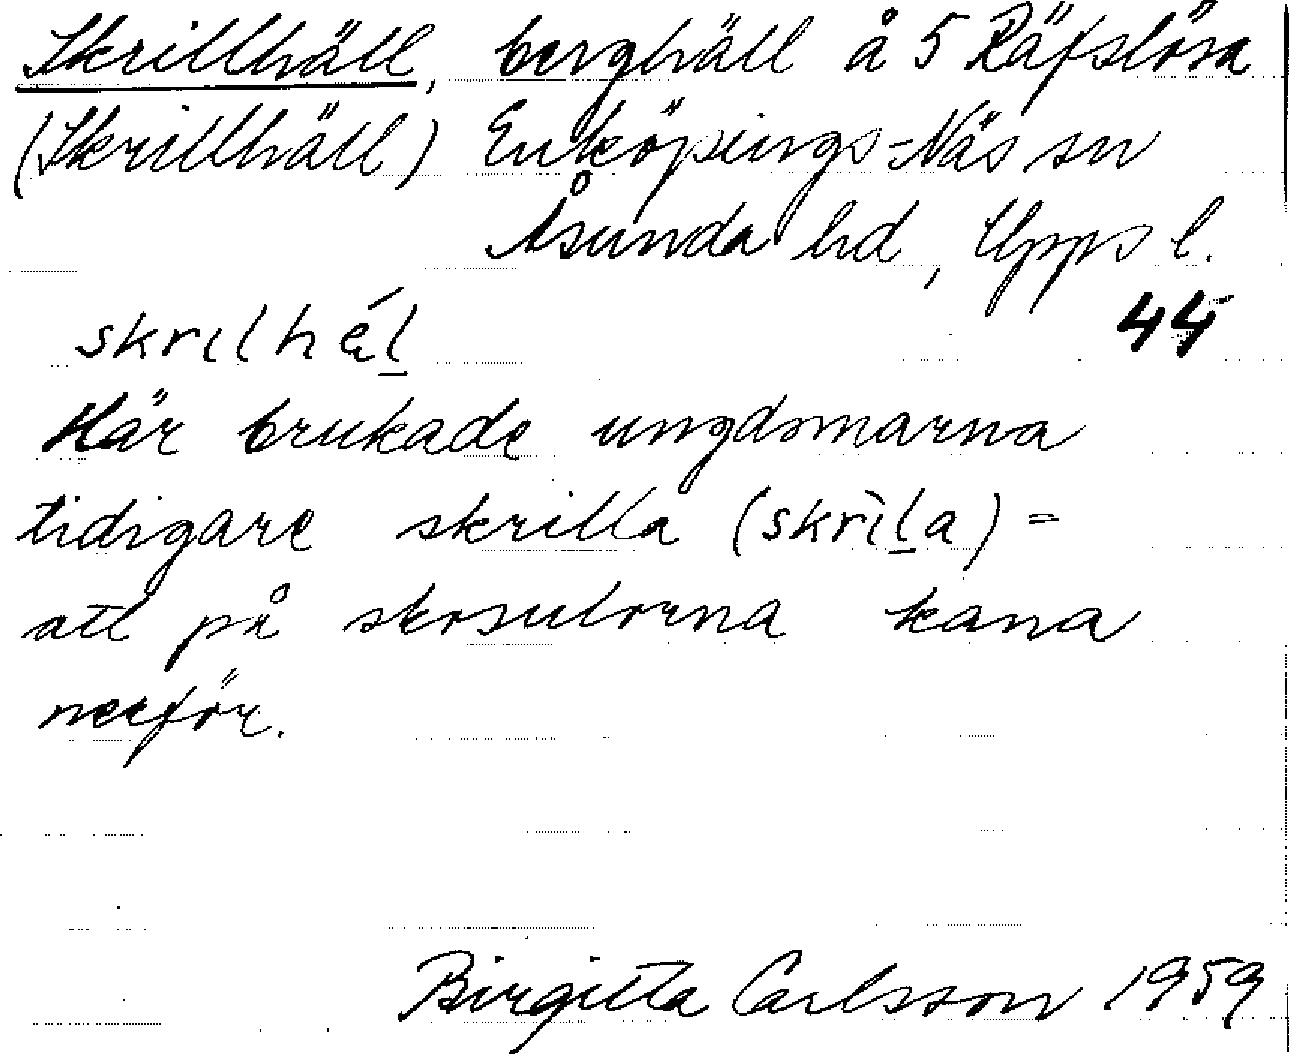 Skrillhäll, berghäll å 5 Räfslösa
(Skrillhäll) Enköpings-Näs sn
Åsunda hd, Upps l.
skrilhǽl
44
Här brukade ungdomarna
tidigare skrilla (skrìla) =
att på skosulorna kana
nerför.
Birgitta Carlsson 1959